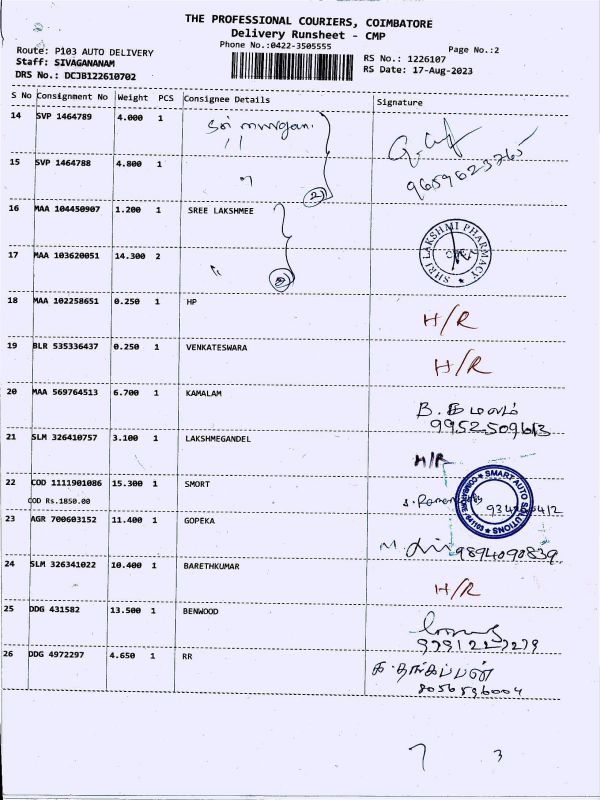 THE PROFESSIONAL COURIERS, COIMBATORE
Delivery Runsheet - CMP
Phone No.:0422-3505555
Page No.:2
Route: P103 AUTO DELIVERY
Staff: SIVAGANANAM
DRS No.: DCJB122610702
RS No.: 1226107
RS Date: 17-Aug-2023
S No Consignment No Weight PCS Consignee Details Signature
14 SVP 1464789 4.000 1 Sri murugan
15 SVP 1464788 4.800 1 9659623765
2
16 MAA 104450907 1.200 1 SREE LAKSHMEE
17 MAA 103620051 14.300 2 SHRI LAKSHMI PHARMACY
18 MAA 102258651 0.250 1 HP H/R
19 BLR 535336437 0.250 1 VENKATESWARA H/R
20 MAA 569764513 6.700 1 KAMALAM B. கமலம்
9952509613
21 SLM 326410757 3.100 1 LAKSHMEGANDEL H/R
22 COD 1111901086 15.300 1 SMORT SMART AUTO SOLUTIONS
COD Rs.1850.00
23 AGR 700603152 11.400 1 GOPEKA 9894090839
24 SLM 326341022 10.400 1 BARETHKUMAR H/R
25 DDG 431582 13.500 1 BENWOOD
26 DDG 4972297 4.650 1 RR க. தங்கப்பன்
8056596004
7 3